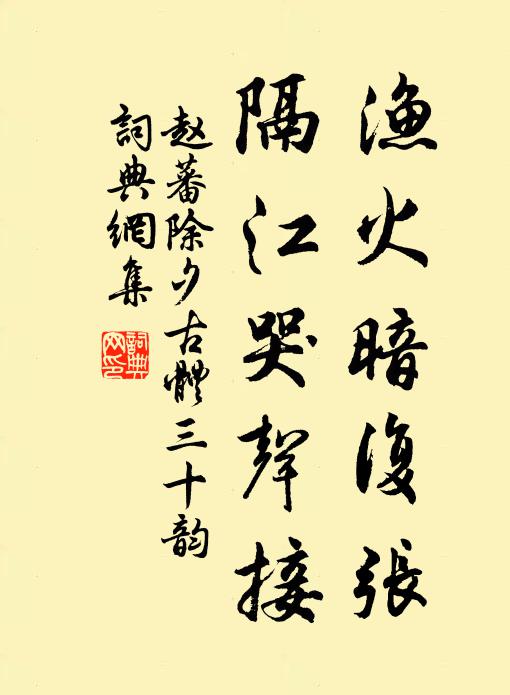 漁火暗復張
隔江哭聲接
赵蕃除夕古體三十韵
詞典網集
詞典網印